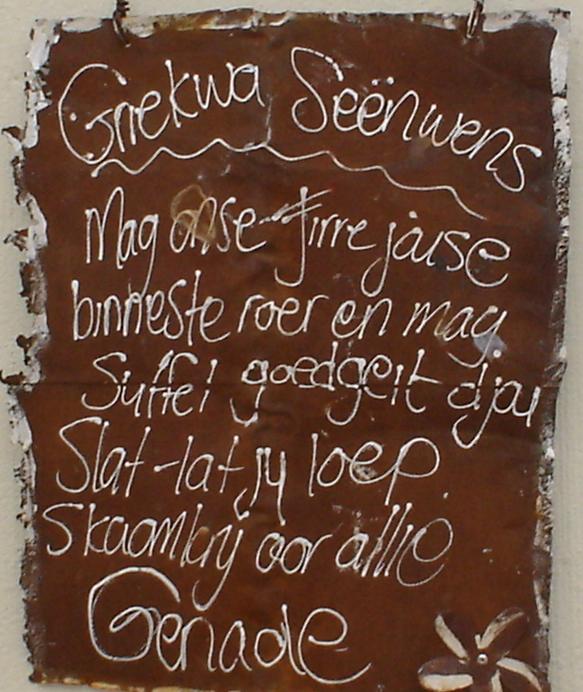 Griekwa Seënwens
Mag onse jirre jause
binneste roer en mag
Suffel goedgeit djou
Slat-lat jy loep
Skaamkry oor allie
Genade